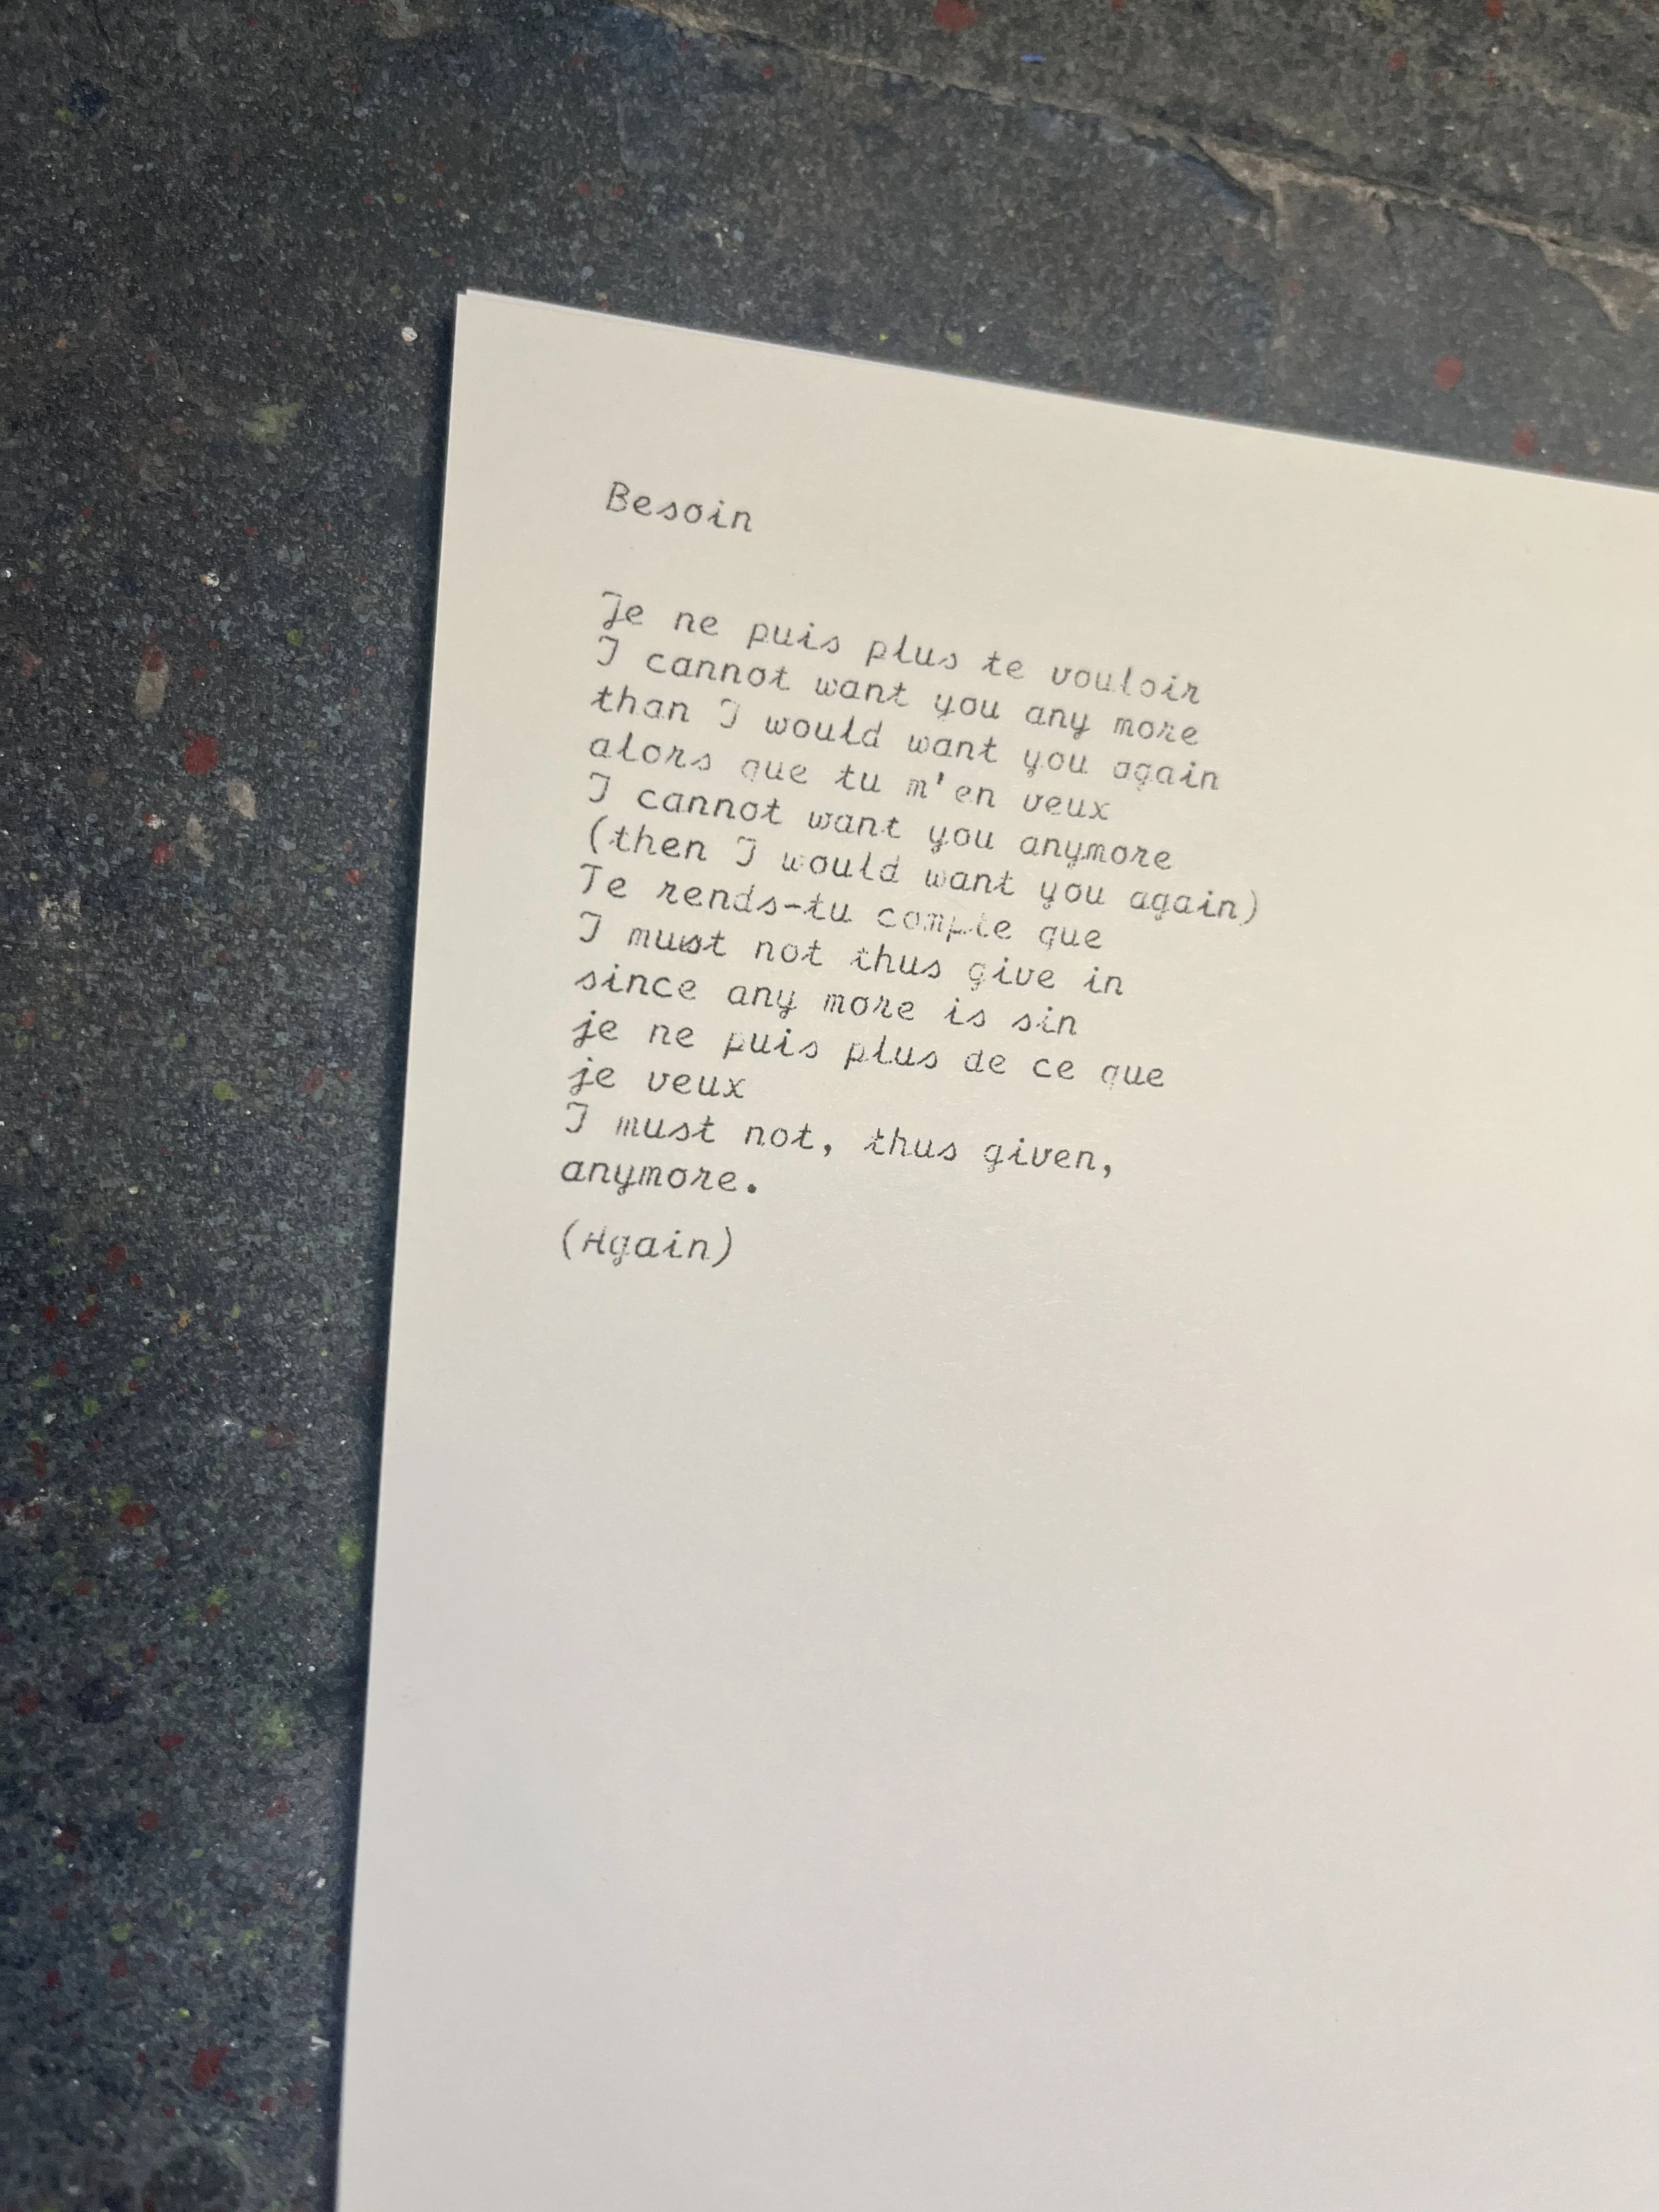 Besoin
Je ne puis plus te vouloir
I cannot want you any more
than I would want you again
alors que tu m'en veux
I cannot want you anymore
(then I would want you again)
Te rends-tu compte que
I must not thus give in
since any more is sin
je ne puis plus de ce que
je veux
I must not, thus given,
anymore.
(Again)